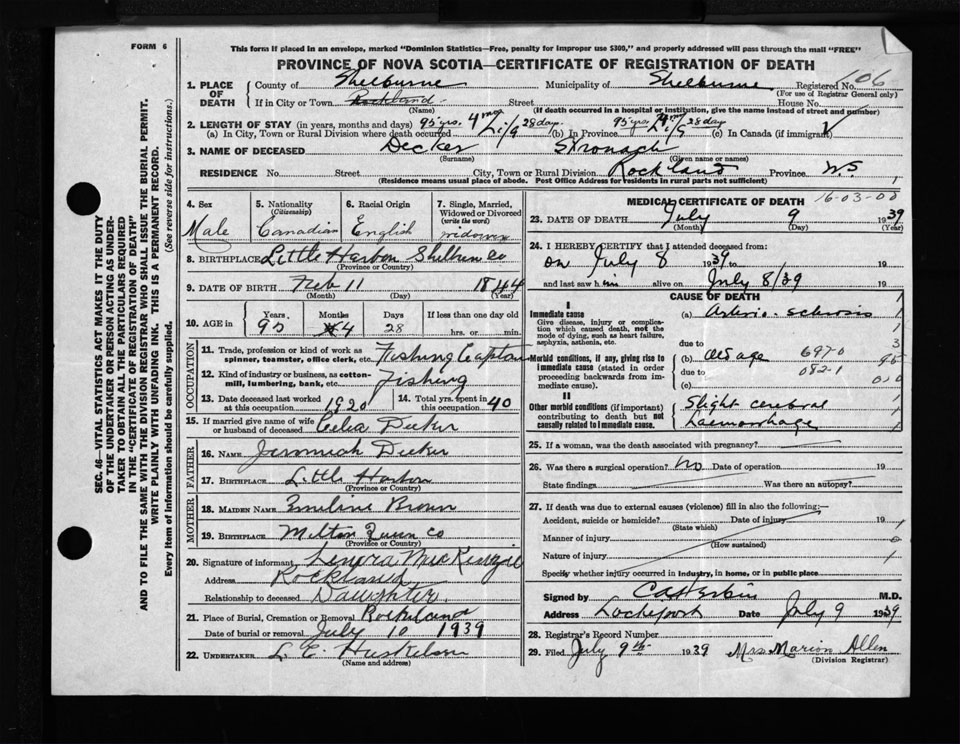 FORM 6
This form if placed in an envelope, marked "Dominion Statistics—Free, penalty for improper use $300," and properly addressed will pass through the mail "FREE"
PROVINCE OF NOVA SCOTIA—CERTIFICATE OF REGISTRATION OF DEATH
106
1. PLACE OF DEATH County of Shelburne Municipality of Shelburne Registered No.
(For use of Registrar General only)
If in City or Town Rockland Street House No.
(If death occurred in a hospital or institution, give the name instead of street and number)
2. LENGTH OF STAY (in years, months and days) 95 yrs. 4 mos 28 days 95 yrs 28 day
(a) In City, Town or Rural Division where death occurred (b) In Province (c) In Canada (if immigrant)
3. NAME OF DECEASED Decker Stronach
(Surname) (Given name or names)
RESIDENCE No. Street City, Town or Rural Division Rockland Province N.S
(Residence means usual place of abode. Post Office Address for residents in rural parts not sufficient)
4. Sex Male
5. Nationality (Citizenship) Canadian
6. Racial Origin English
7. Single, Married, Widowed or Divorced (write the word) widower
8. BIRTHPLACE Little Harbor Shelburn Co
(Province or Country)
9. DATE OF BIRTH Feb 11 1844
(Month) (Day) (Year)
10. AGE in Years Months Days If less than one day old
95 4 28 hrs. or min.
OCCUPATION
11. Trade, profession or kind of work as spinner, teamster, office clerk, etc. Fishing Captain
12. Kind of industry or business, as cotton-mill, lumbering, bank, etc. Fishing
13. Date deceased last worked at this occupation 1920
14. Total yrs. spent in this occupation 40
15. If married give name of wife or husband of deceased Celia Decker
FATHER
16. NAME Jeremiah Decker
17. BIRTHPLACE Little Harbor
(Province or Country)
MOTHER
18. MAIDEN NAME Emilene Brown
19. BIRTHPLACE Milton Queen Co
(Province or Country)
20. Signature of informant Lenora MacKenzie
Address Rockland
Relationship to deceased Daughter
21. Place of Burial, Cremation or Removal Rockland
Date of burial or removal July 10 1939
22. UNDERTAKER L. E. Huskelson
(Name and address)
MEDICAL CERTIFICATE OF DEATH
16-03-00
1
23. DATE OF DEATH July 9 1939
(Month) (Day) (Year)
24. I HEREBY CERTIFY that I attended deceased from:
on July 8 1939 to 19
and last saw him alive on July 8/39 19
CAUSE OF DEATH
I
Immediate cause
Give disease, injury or complication which caused death, not the mode of dying, such as heart failure, asphyxia, asthenia, etc.
(a) Arterio-sclerosis
due to
Morbid conditions, if any, giving rise to immediate cause (stated in order proceeding backwards from immediate cause).
(b) Old age 697-0 95
due to 082-1
(c)
II
Other morbid conditions (if important) contributing to death but not causally related to immediate cause.
Slight cerebral
haemorrhage
25. If a woman, was the death associated with pregnancy?
26. Was there a surgical operation? No Date of operation 19
State findings Was there an autopsy?
27. If death was due to external causes (violence) fill in also the following:—
Accident, suicide or homicide? Date of injury 19
(State which)
Manner of injury
(How sustained)
Nature of injury
Specify whether injury occurred in industry, in home, or in public place
Signed by M.D.
Address Lockeport Date July 9 1939
28. Registrar's Record Number
29. Filed July 9th 1939 Mrs Marion Allen
(Division Registrar)
SEC. 46—VITAL STATISTICS ACT MAKES IT THE DUTY
OF THE UNDERTAKER OR PERSON ACTING AS UNDER-
TAKER TO OBTAIN ALL THE PARTICULARS REQUIRED
IN THE "CERTIFICATE OF REGISTRATION OF DEATH"
AND TO FILE THE SAME WITH THE DIVISION REGISTRAR WHO SHALL ISSUE THE BURIAL PERMIT.
WRITE PLAINLY WITH UNFADING INK. THIS IS A PERMANENT RECORD.
Every item of information should be carefully supplied. (See reverse side for instructions.)